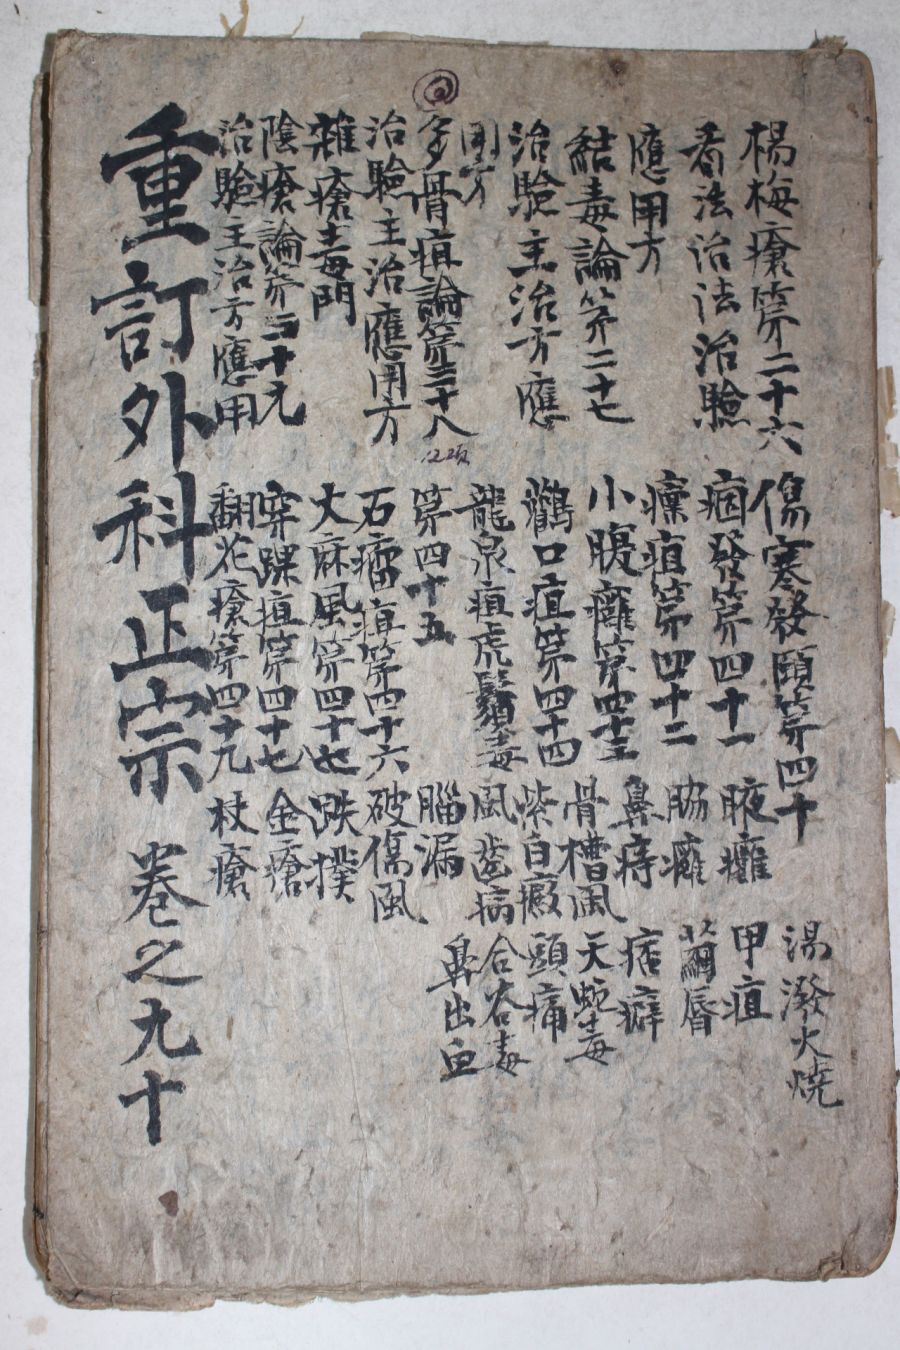 楊梅瘡第二十六
看法治法治驗
應用方
結毒論第二十七
治驗主治方應
用方
多骨疽論第二十八
治驗主治應用方
雜瘡毒門
陰瘡論第三十九
治驗主治方應用
傷寒發頤第四十
痼發第四十一
瘭疽第四十二
小腹癰第四十三
鸛口疽第四十四
龍泉疽虎鬚毒
第四十五
石瘤疽第四十六
大麻風第四十七
穿踝疽第四十七
翻花瘡第四十九
腋癰
脇癰
鼻痔
骨槽風
紫白癜
風齒病
腦漏
破傷風
跌撲
金瘡
杖瘡
湯潑火燒
甲疽
繭唇
痞癖
天蛇毒
頭痛
合谷毒
鼻出血
重訂外科正宗 卷之九十